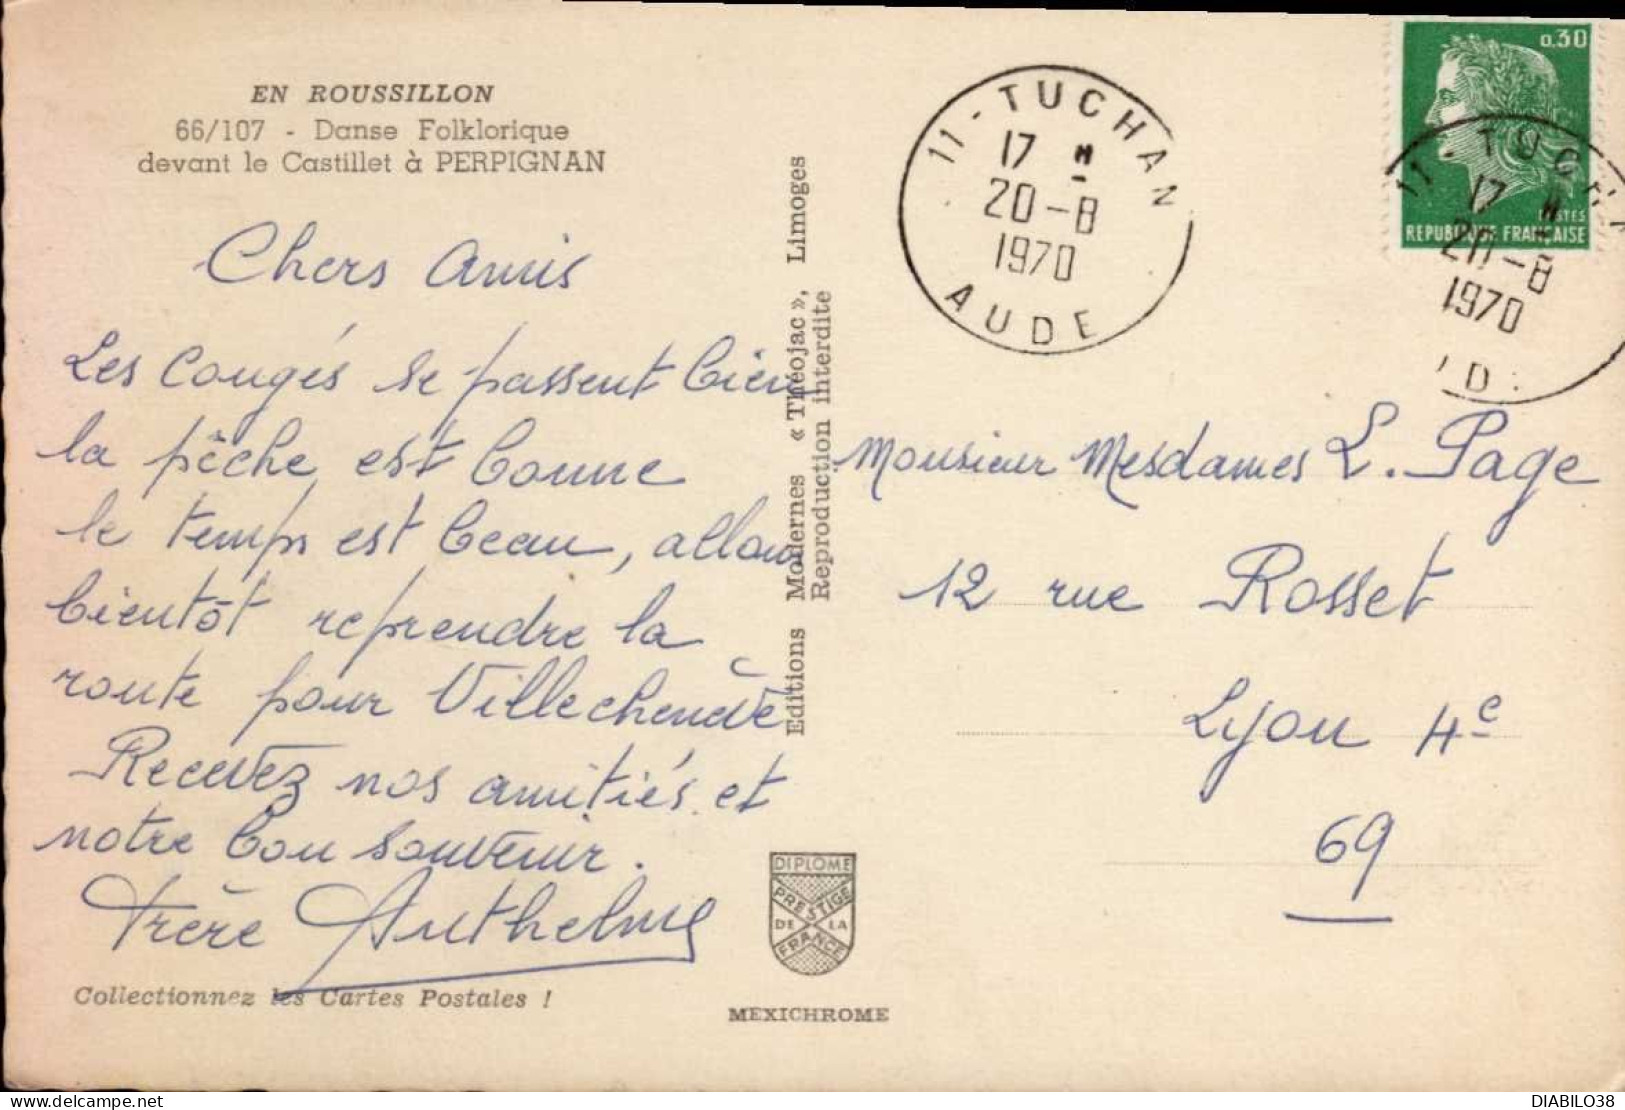 EN ROUSSILLON
66/107 - Danse Folklorique
devant le Castillet à PERPIGNAN
Chers Amis
Les Congés se passent bien
la pêche est bonne
le temps est beau, allons
bientôt reprendre la
route pour Villechenève
Recevez nos amitiés et
notre bon souvenir.
Frère Anthelme
Collectionnez les Cartes Postales !
Editions Modernes « Théojac », Limoges
Reproduction interdite
DIPLOME
PRESTIGE
DE LA
FRANCE
MEXICHROME
11 - TUCHAN
17 H
20 - 8
1970
AUDE
0,30
POSTES
REPUBLIQUE FRANÇAISE
11 - TUCHA
17 H
20 - 8
1970
D
Monsieur Mesdames L. Page
12 rue Rosset
Lyon 4e
69
DIABILO38